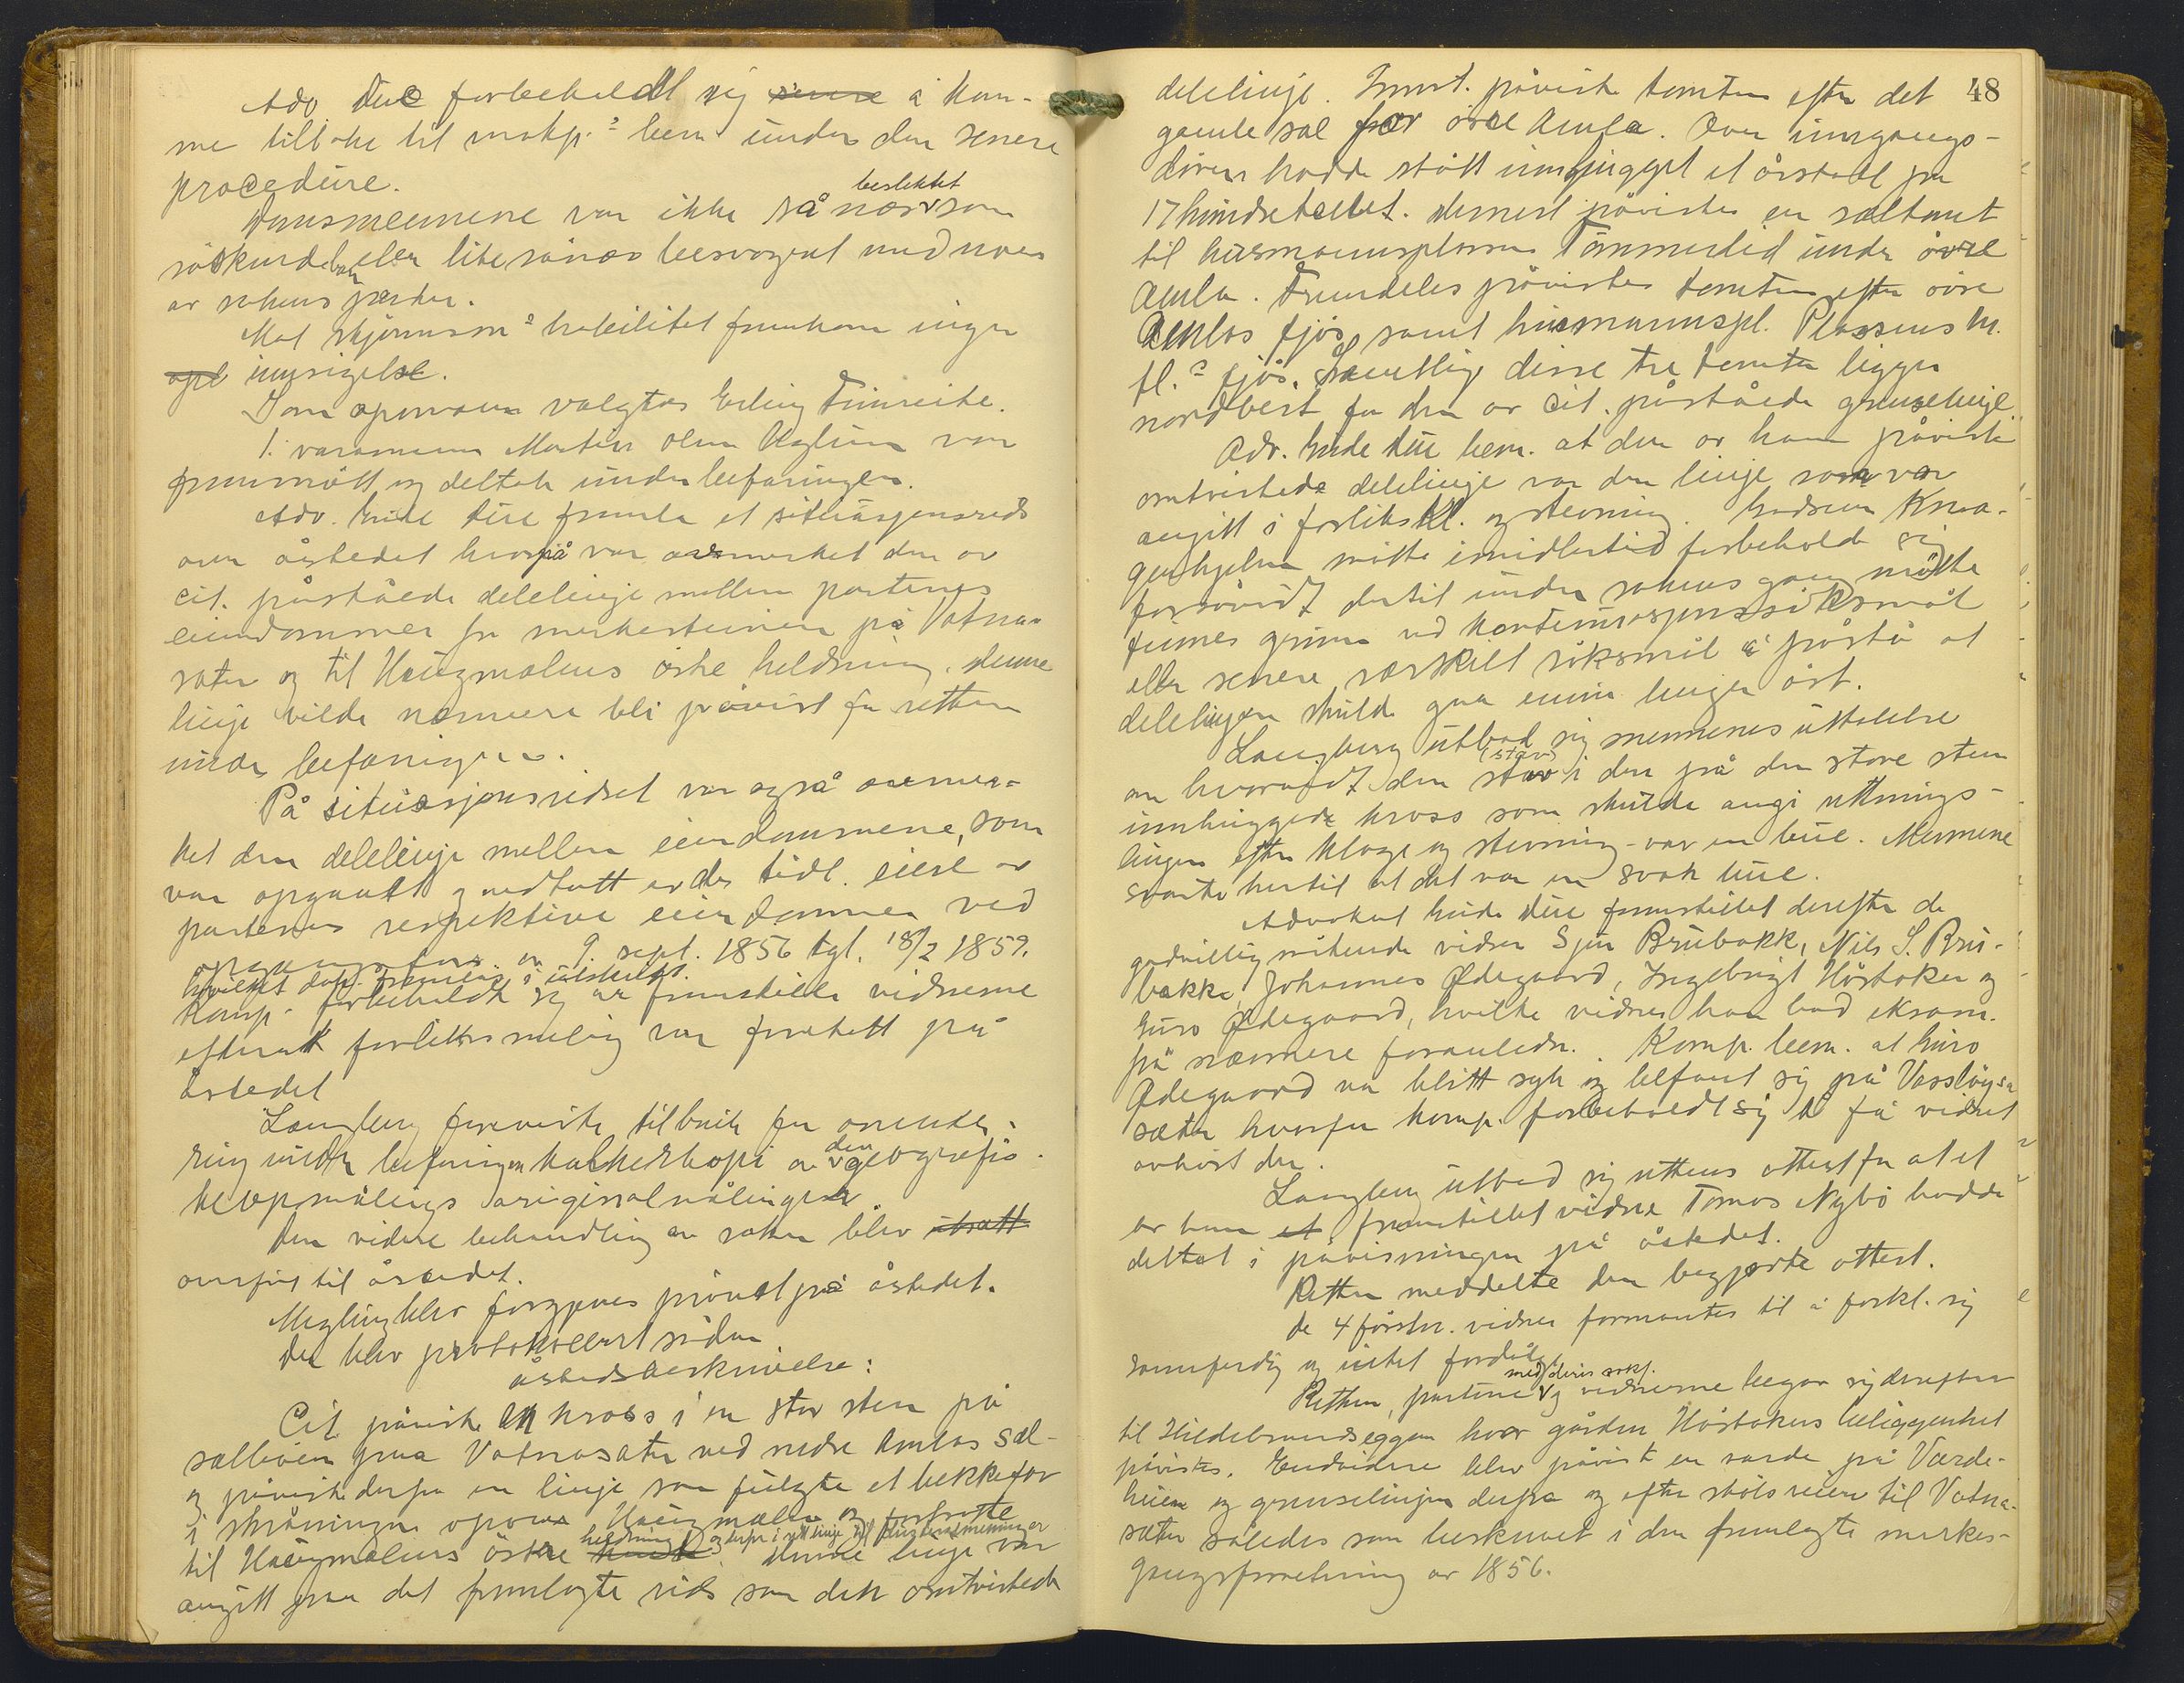 Adv. Due forbeholdt sig senere å kom-
me tilbake til motp.s bem. under den senere
procedure.
Domsmennene var ikke så nær beslektet som
søskendebarn eller like så nær besvogret med noen
av sakens parter.
Mot skjønnsm.s habilitet fremkom ingen
innsigelse.
Som opmann valgtes Erling Timreite.
1. varamann Martin Olsen Uglum var
fremmøtt og deltok under befaringen.
Adv. Hude Due fremla et situasjonsrids
over åstedet hvorpå var avmerket den av
cit. påståede delelinje mellem partenes
eiendommer fra merkesteinen på Vatna-
sæter og til Haugmælens østre heldning. Denne
linje vilde nærmere bli påvist for retten
under befaringen.
På situasjonsridset var også avmer-
ket den delelinje mellem eiendommene, som
var opgaatt og vedtatt av des tidl. eiere av
partenes respektive eiendommer ved
opgangsforr. av 9. sept. 1856 tgl. 18/2 1859.
hvilket dok. fremlas i utskrift.
Komp. forbeholdt sig at fremstille vidnerne
efter at forliksmegling var foretatt på
åstedet
Langberg foreviste til bruk for oriente-
ring under befaringen kalkerkopi av den geografis-
ke opmålings originalmålinger
Den videre behandling av saken blev utsatt
overført til åstedet.
Megling blev forgjeves prøvet på åstedet.
Der blev protokollert sådan
åstedsbeskrivelse:
Cit. påviste et kross i en stor sten på
sælleiven paa Vatnasæter ved nedre Amlas sæl-
og påviste derfra en linje som fulgte et bekkefar
i skråningen opover Haugmælen og fortsatte
til Haugmælens østre heldning og derfra i rett linje til
angitt paa det fremlagte rids som den omtvistede

48
delelinje. Innst. påviste tomten efter det
gamle sæl for øvre Amla. Over inngangs-
døren hadde stått innhugget et årstall fra
17 hundretallet. Dernest påvistes en sæltomt
til husmannsplassen Tømmerlid under øvre
Amla. Fremdeles påvistes tomten efter øvre
Amlas fjøs, samt husmannspl. Plassens m.
fl.s fjøs. Samtlige disse tre tomter ligger
nordvest for den av cit. påståede grenselinje.
Adv. Hude Due bem. at den av ham påviste
omtvistede delelinje var den linje som var
angitt i forlikskl. og stevning. Madam Knea-
genhjelm måtte imidlertid forbeholde sig
forsåvidt dertil under sakens gang måtte
finnes grunn ved kontinuasjonssøksmål
eller senere særskilt søksmål å påstå at
delelinjen skulde gaa ennu lenger øst.
Langberg utbad sig mennenes uttalelse
om hvorvidt den stav (stav) i den på den store sten
innhuggede kross som skulde angi retnings-
linjen efter klage og stevning - var en bue. Mennene
svarte hertil at det var en svak bue.
Advokat Hude Due fremstillet derefter de
godvillig møtende vidner Sjur Brubakk, Nils S. Bru-
bakke, Johannes Ødegaard, Ingebrigt Høstaker og
Guro Ødegaard, hvilke vidner han bad eksam.
på nærmere foranledn. Komp. bem. at Guro
Ødegaard var blitt syk og befant sig på Vassløysa
sæter hvorfor komp. forbeholdt sig å få vidnet
avhørt der.
Langberg utbad sig rettens attest for at et
av ham et fremstillet vidne Tomas Nybø hadde
deltat i påvisningen på åstedet.
Retten meddelte den begjærte attest.
De 4 førstn. vidner formantes til å forkl. sig
sannferdig og intet fordølge.
Retten, partene med deres sakf. og vidnerne begav sig derefter
til Hildebrandseggen hvor gården Høstakers beliggenhet
påvistes. Endvidere blev påvist en varde på Varde-
huien og grenselinjen derfra og efter støls veien til Vatna-
sæter således som beskrevet i den fremlagte merkes-
gangsforretning av 1856.